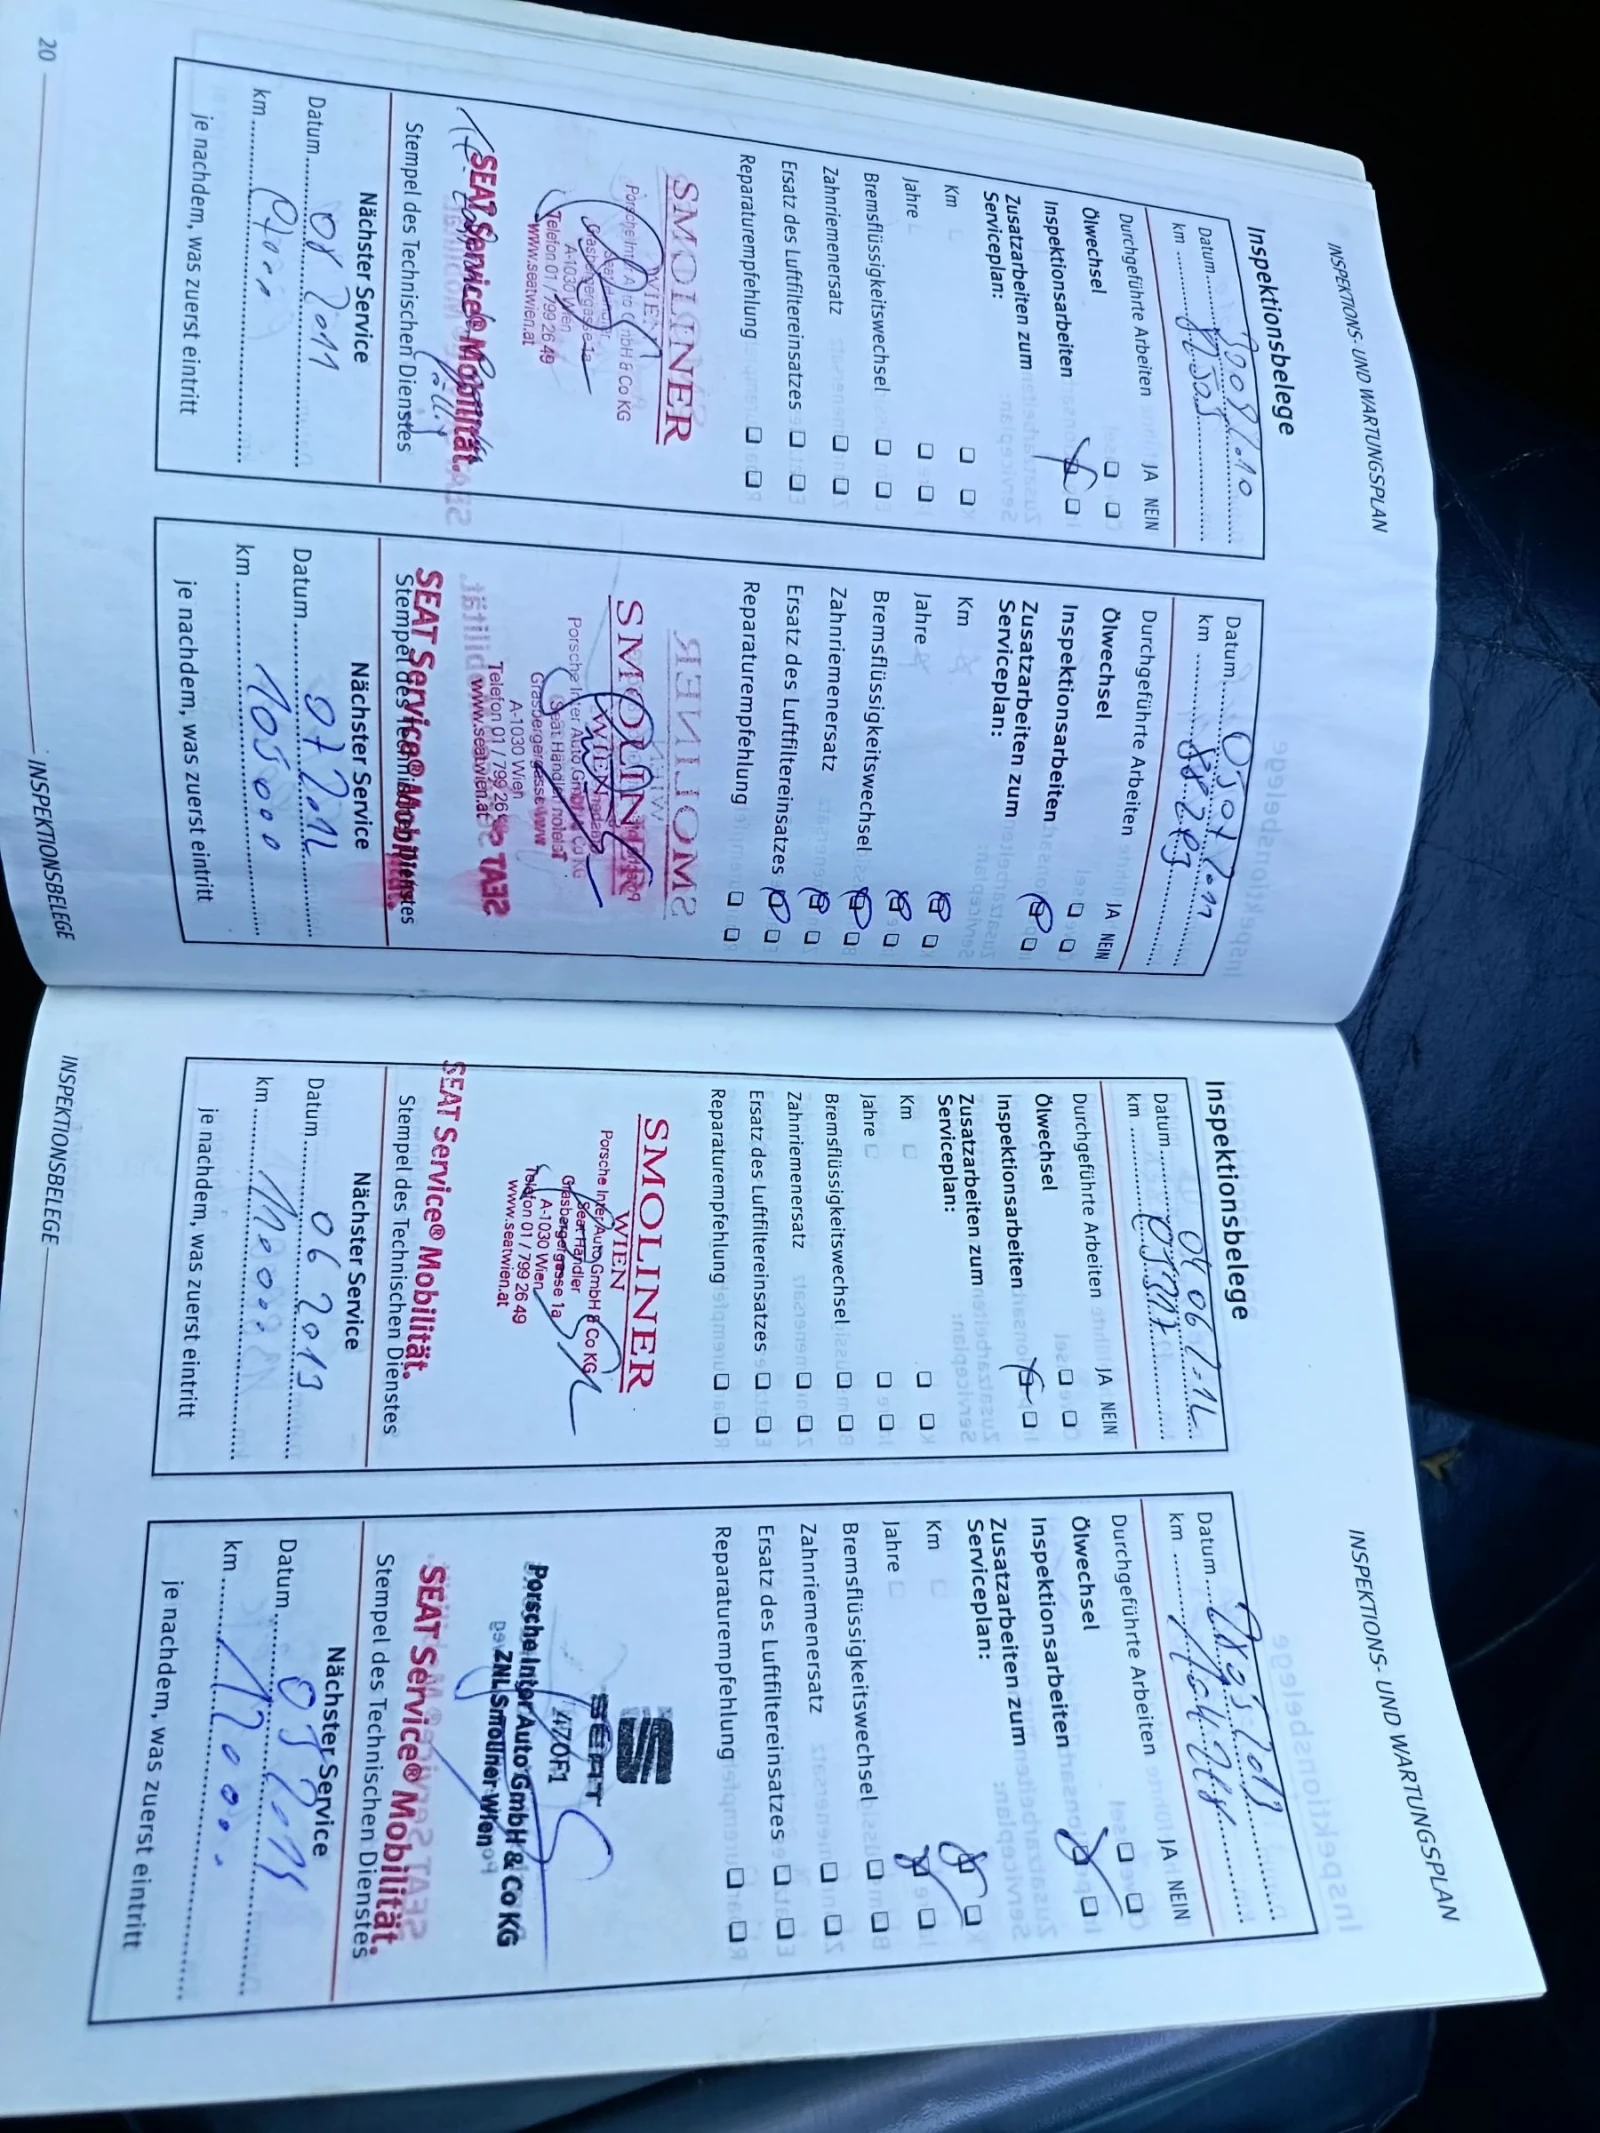 INSPEKTIONS- UND WARTUNGSPLAN
Inspektionsbelege
Datum
km
Durchgeführte Arbeiten JA NEIN
Ölwechsel
Inspektionsarbeiten
Zusatzarbeiten zum
Serviceplan:
Km
Jahre
Bremsflüssigkeitswechsel
Zahnriemenersatz
Ersatz des Luftfiltereinsatzes
Reparaturempfehlung
SMOLINER
WIEN
Porsche Inter Auto GmbH & Co KG
Seat Händler
Grasbergergasse 1a
A-1030 Wien
Telefon 01 / 799 26 49
www.seatwien.at
SEAT Service® Mobilität.
Stempel des Technischen Dienstes
Nächster Service
Datum 08 2011
km
je nachdem, was zuerst eintritt
Datum 05 07 2011
km 88203
Durchgeführte Arbeiten JA NEIN
Ölwechsel
Inspektionsarbeiten
Zusatzarbeiten zum
Serviceplan:
Km
Jahre
Bremsflüssigkeitswechsel
Zahnriemenersatz
Ersatz des Luftfiltereinsatzes
Reparaturempfehlung
SMOLINER
WIEN
Porsche Inter Auto GmbH & Co KG
Seat Händler
Grasbergergasse
A-1030 Wien
Telefon 01 / 799 26
www.seatwien.at
SEAT Service® Mobilität.
Stempel des Technischen Dienstes
Nächster Service
Datum 07 2012
km 105000
je nachdem, was zuerst eintritt
20
INSPEKTIONSBELEGE
Inspektionsbelege
Datum 04 06 2012
km
Durchgeführte Arbeiten JA NEIN
Ölwechsel
Inspektionsarbeiten
Zusatzarbeiten zum
Serviceplan:
Km
Jahre
Bremsflüssigkeitswechsel
Zahnriemenersatz
Ersatz des Luftfiltereinsatzes
Reparaturempfehlung
SMOLINER
WIEN
Porsche Inter Auto GmbH & Co KG
Seat Händler
Grasbergergasse 1a
A-1030 Wien
Telefon 01 / 799 26 49
www.seatwien.at
SEAT Service® Mobilität.
Stempel des Technischen Dienstes
Nächster Service
Datum 06 2013
km
je nachdem, was zuerst eintritt
INSPEKTIONS- UND WARTUNGSPLAN
Datum
km
Durchgeführte Arbeiten JA NEIN
Ölwechsel
Inspektionsarbeiten
Zusatzarbeiten zum
Serviceplan:
Km
Jahre
Bremsflüssigkeitswechsel
Zahnriemenersatz
Ersatz des Luftfiltereinsatzes
Reparaturempfehlung
SEAT
470F1
Porsche Inter Auto GmbH & Co KG
ZNL Smoliner Wien
SEAT Service® Mobilität.
Stempel des Technischen Dienstes
Nächster Service
Datum
km
je nachdem, was zuerst eintritt
INSPEKTIONSBELEGE